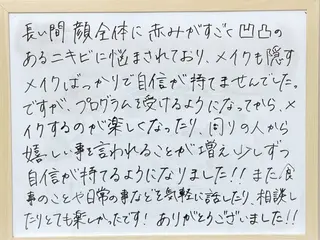 長い間 顔全体に赤みがすごく凹凸の
あるニキビに悩まされており、メイクも隠す
メイクばっかりで自信が持てませんでした。
ですが、プログラムを受けるようになってから、メ
イクするのが楽しくなったり、周りの人から
嬉しい事を言われることが増え少しずつ
自信が持てるようになりました!! また食
事のことや日常の事などを気軽に話したり、相談し
たりとても楽しかったです! ありがとうございました!!